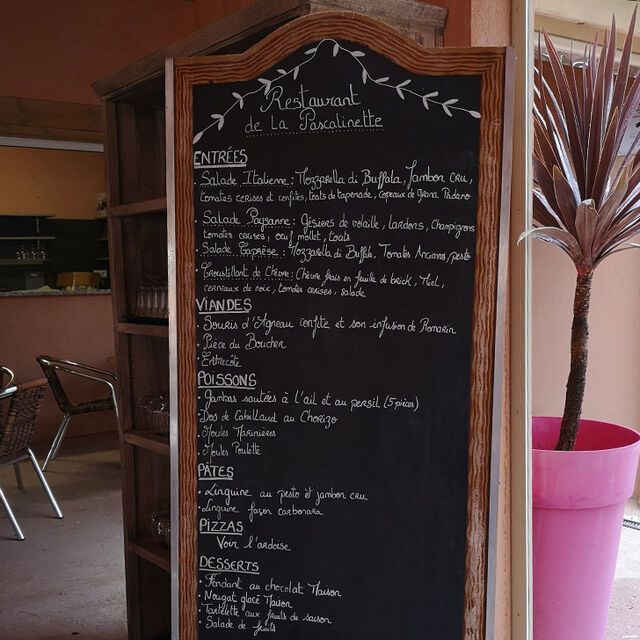 Restaurant
de La Pascalinette
ENTRÉES
. Salade Italienne : Mozzarella di Buffala, Jambon cru,
tomates cerises et confites, toasts de tapenade, Copeaux de Grana Padano
. Salade Paysanne : Gésiers de volaille, lardons, Champignons
tomates cerises, oeuf mollet, toasts
. Salade Caprèse : Mozzarella di Buffala, Tomates Anciennes, pesto
. Croustillant de Chèvre : Chèvre frais en feuille de brick, Miel,
cerneaux de noix, tomates cerises, salade
VIANDES
. Souris d'Agneau confite et son infusion de Romarin
. Pièce du Boucher
. Entrecôte
POISSONS
. Gambas sautées à l'ail et au persil (5 pièces)
. Dos de Cabillaud au Chorizo
. Moules Marinières
. Moules Poulette
PÂTES
. Linguine au pesto et jambon cru
. Linguine façon carbonara
PIZZAS
Voir l'ardoise
DESSERTS
. Fondant au chocolat Maison
. Nougat glacé Maison
. Tartelette aux fruits de saison
. Salade de fruits